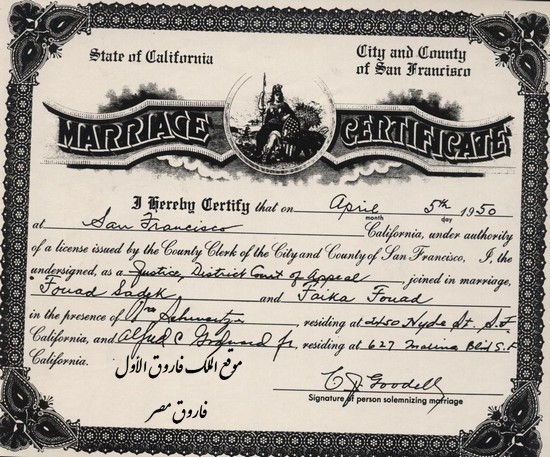 State of California
City and County
of San Francisco
MARRIAGE CERTIFICATE
I Hereby Certify that on April 5th 1950
month day
at San Francisco California, under authority
of a license issued by the County Clerk of the City and County of San Francisco, I, the
undersigned, as a Justice, District Court of Appeal joined in marriage,
Fouad Sadek and Faika Fouad
in the presence of Schwartz, residing at 2450 Hyde St. S.F
California, and Alfred C residing at 627 Marina Blvd S.F
California.
موقع الملك فاروق الأول
فاروق مصر
C J Goodell
Signature of person solemnizing marriage